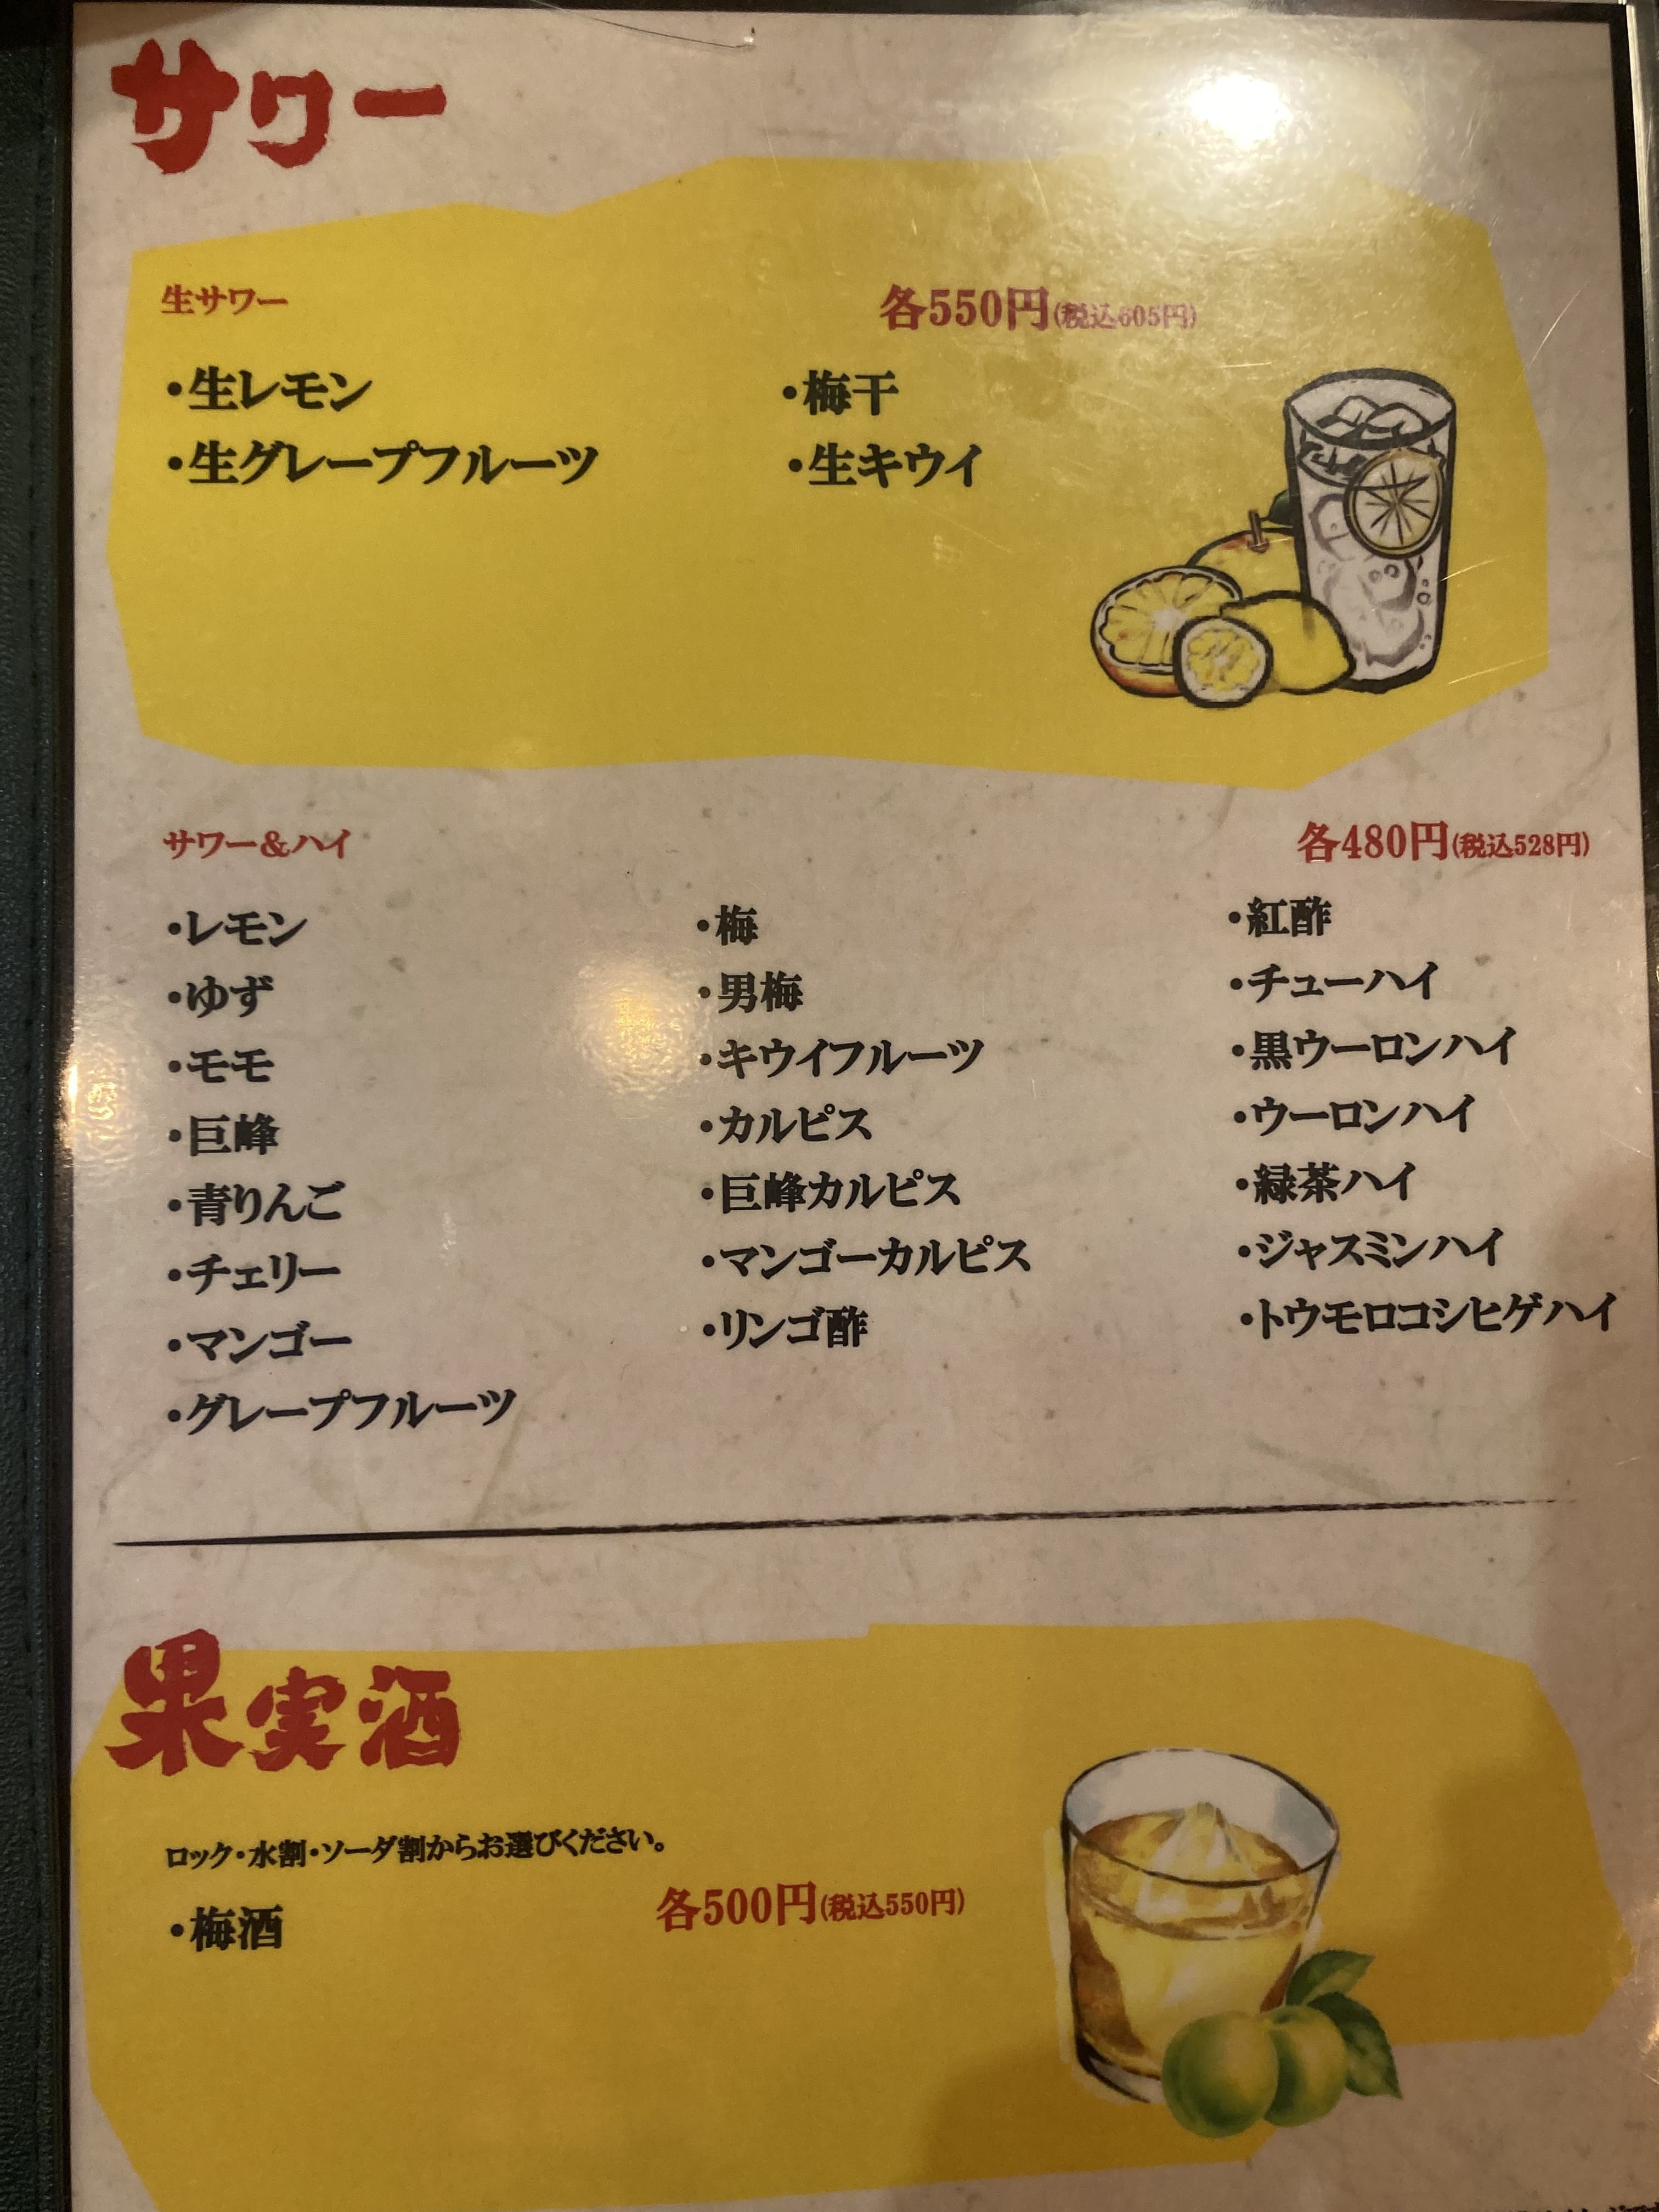 サワー
生サワー 各550円(税込605円)
・生レモン ・梅干
・生グレープフルーツ ・生キウイ
サワー&ハイ 各480円(税込528円)
・レモン
・ゆず
・モモ
・巨峰
・青りんご
・チェリー
・マンゴー
・グレープフルーツ
・梅
・男梅
・キウイフルーツ
・カルピス
・巨峰カルピス
・マンゴーカルピス
・リンゴ酢
・紅酢
・チューハイ
・黒ウーロンハイ
・ウーロンハイ
・緑茶ハイ
・ジャスミンハイ
・トウモロコシヒゲハイ
果実酒
ロック・水割・ソーダ割からお選びください。
・梅酒 各500円(税込550円)